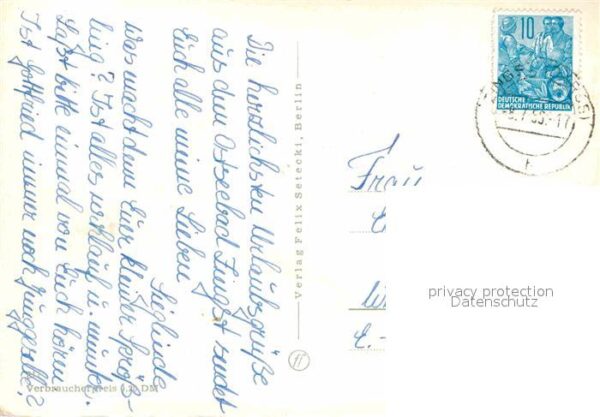 Die herzlichsten Urlaubsgrüße
aus dem Ostseebad Zingst sendet
Euch alle meine Lieben
Sieglinde
Was macht denn Euer kleiner
ling? Ist alles wohlauf u. munter.
Laßt bitte einmal von Euch hören
Ist Gottfried immer noch Junggeselle?
Verbraucherpreis DM
Verlag Felix Setecki, Berlin
10
DEUTSCHE
DEMOKRATISCHE REPUBLIK
Frau
privacy protection
Datenschutz